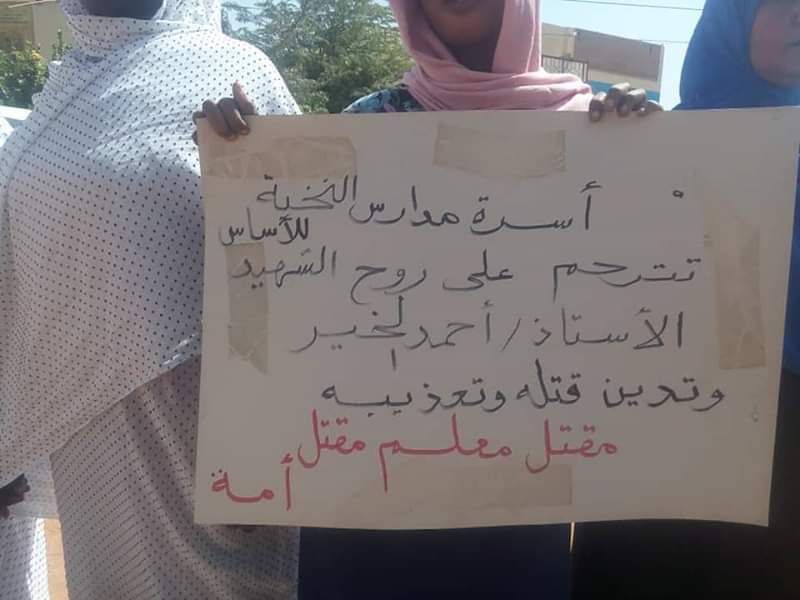 أسرة مدارس النخبة
للأساس
تترحم على روح الشهيد
الأستاذ/أحمد الخير
وتدين قتله وتعذيبه
مقتل معلم مقتل
أمة